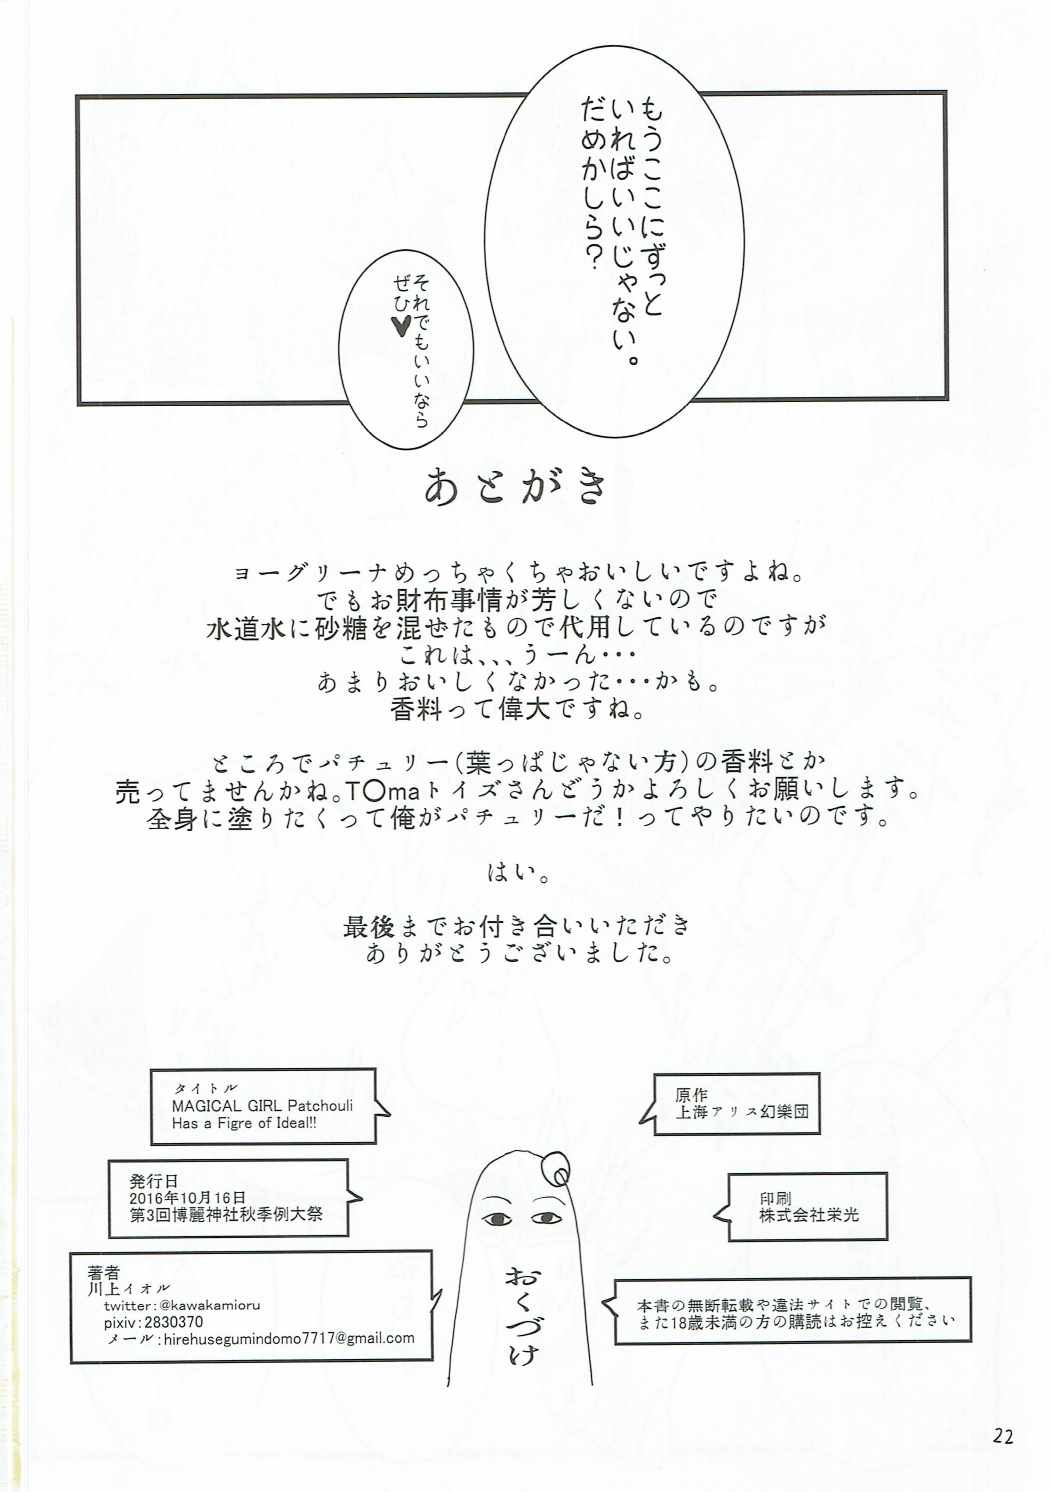 もうここにずっと
いればいいじゃない。
だめかしら？
それでもいいなら
ぜひ♥
あとがき
ヨーグリーナめっちゃくちゃおいしいですよね。
でもお財布事情が芳しくないので
水道水に砂糖を混ぜたもので代用しているのですが
これは、、、うーん・・・
あまりおいしくなかった・・・かも。
香料って偉大ですね。
ところでパチュリー(葉っぱじゃない方)の香料とか
売ってませんかね。T〇maトイズさんどうかよろしくお願いします。
全身に塗りたくって俺がパチュリーだ！ってやりたいのです。
はい。
最後までお付き合いいただき
ありがとうございました。
タイトル
MAGICAL GIRL Patchouli
Has a Figre of Ideal!!
発行日
2016年10月16日
第3回博麗神社秋季例大祭
著者
川上イオル
twitter:@kawakamioru
pixiv:2830370
メール:hirehusegumindomo7717@gmail.com
おくづけ
原作
上海アリス幻樂団
印刷
株式会社栄光
本書の無断転載や違法サイトでの閲覧、
また18歳未満の方の購読はお控えください
22